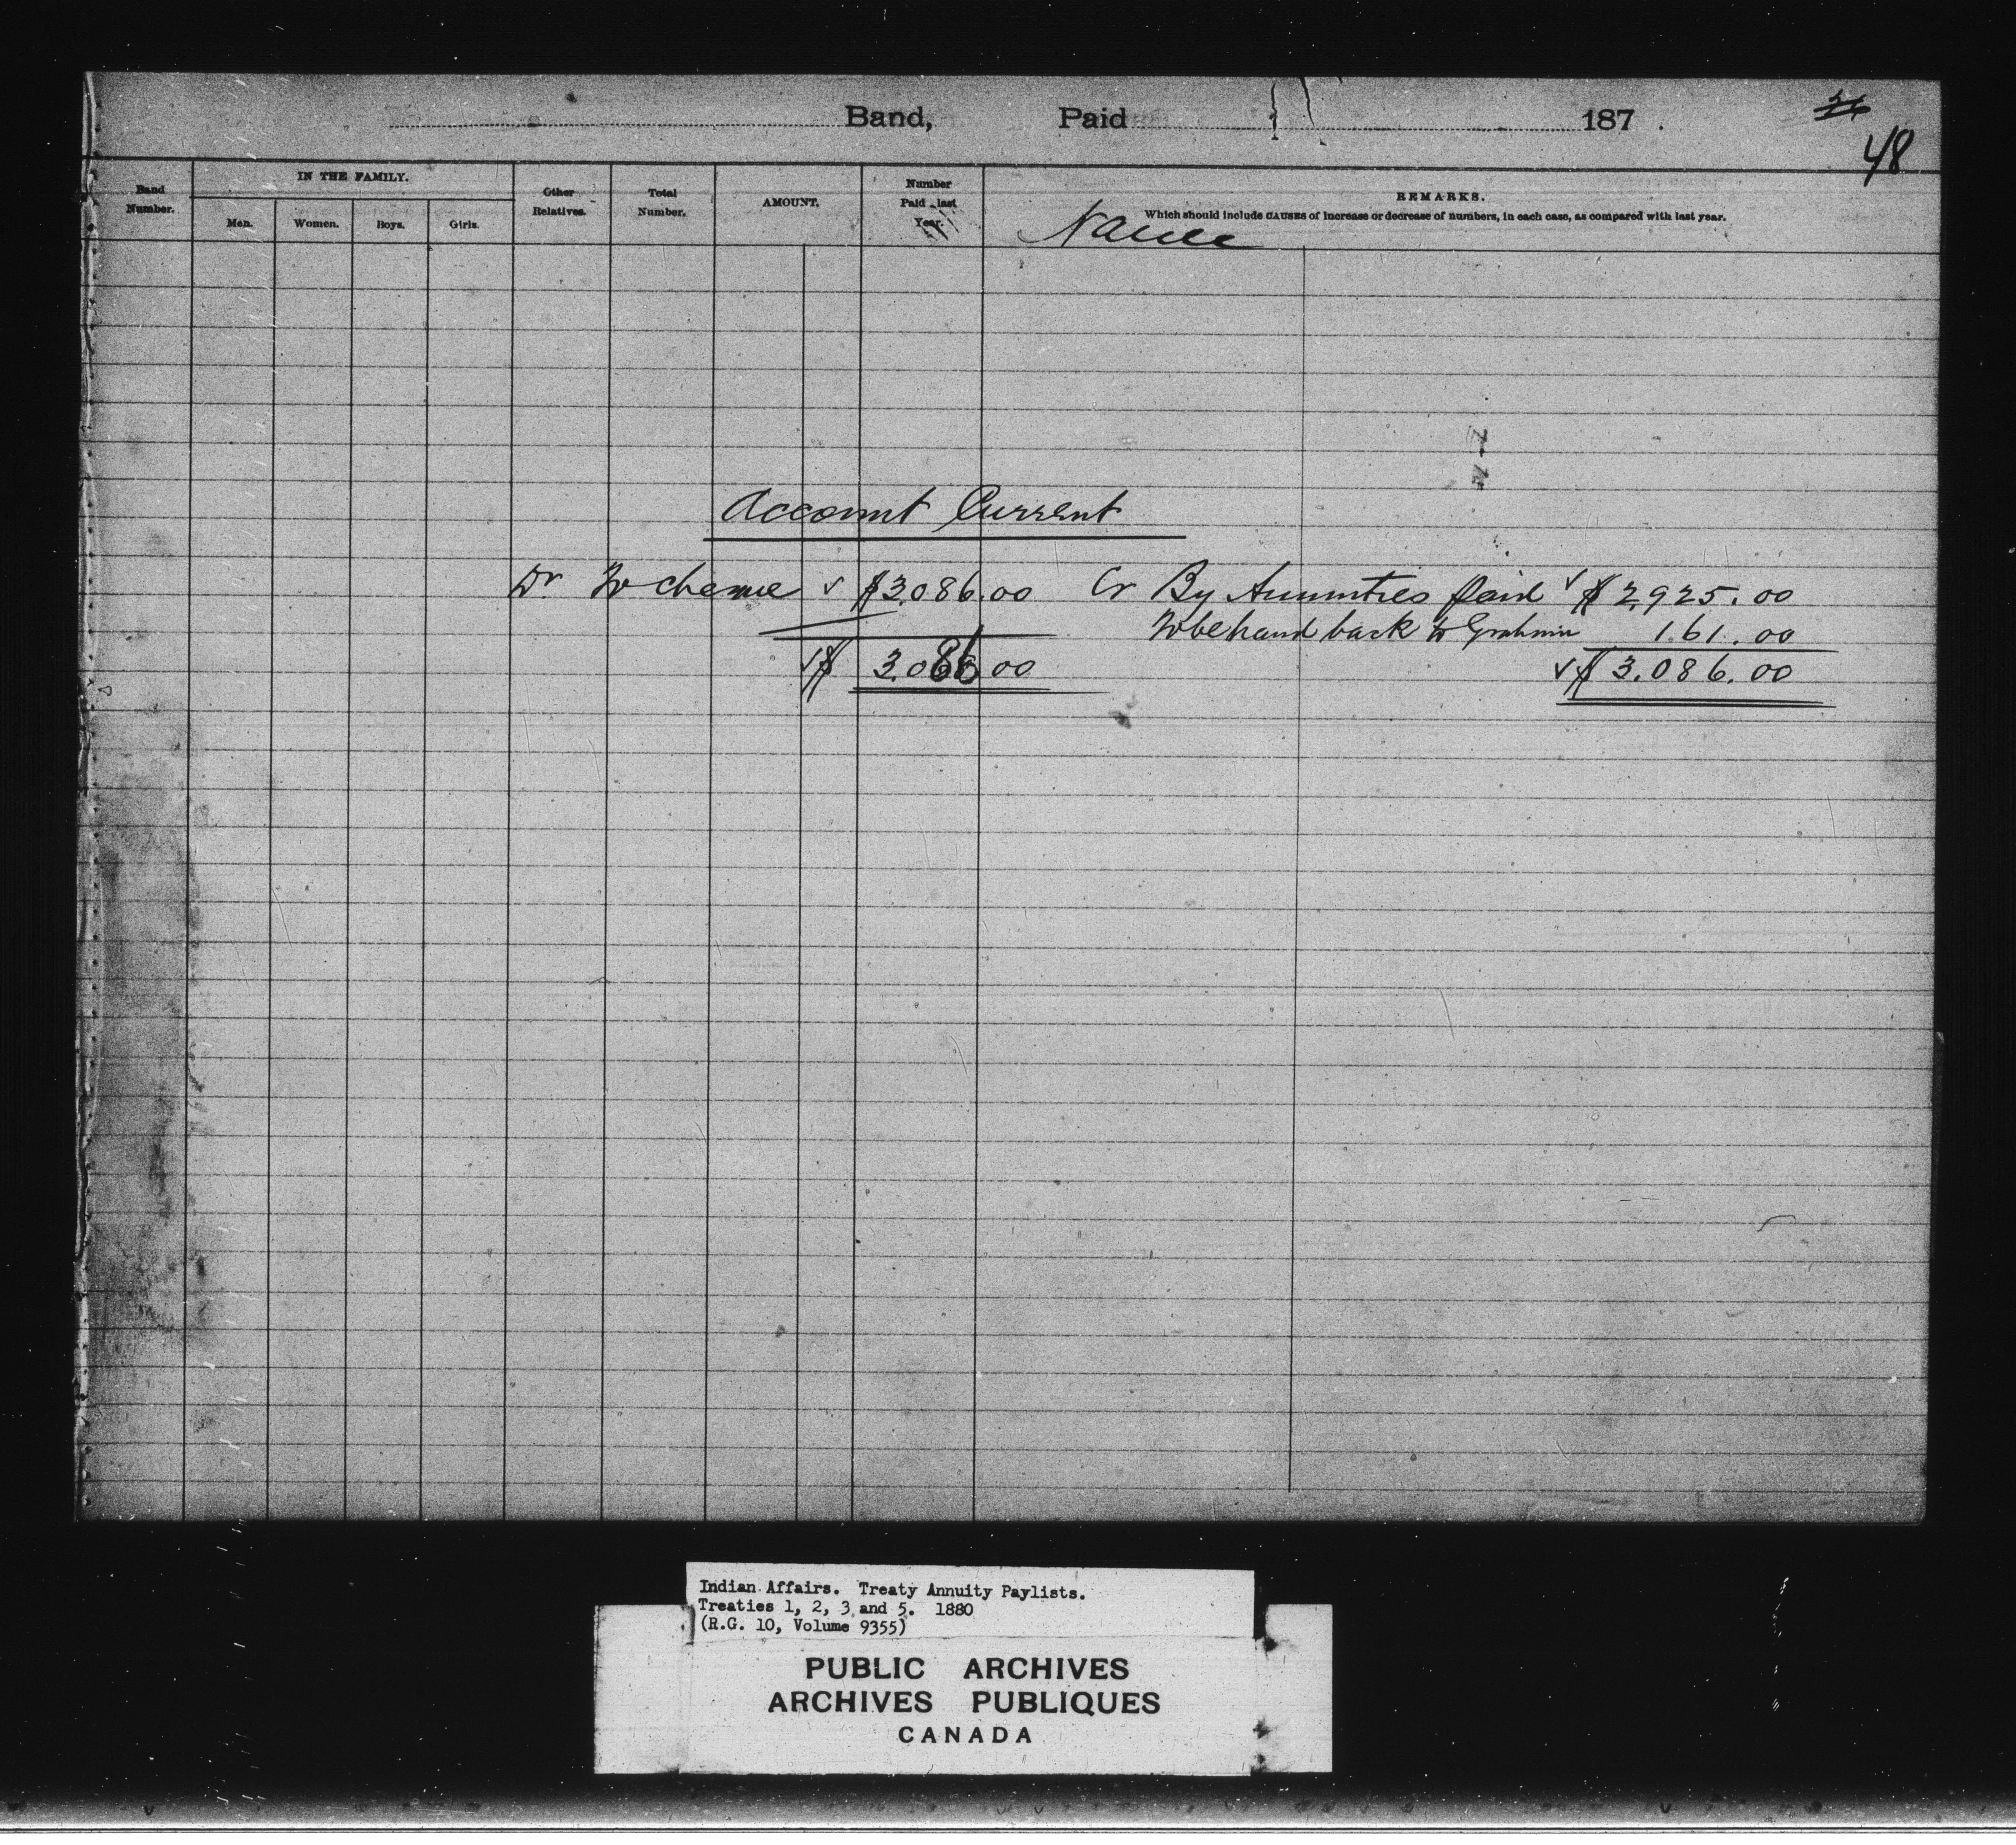 Band, Paid 187 .
26
48
Band Number.
IN THE FAMILY.
Men. Women. Boys. Girls.
Other Relatives.
Total Number.
AMOUNT.
Number Paid last Year.
REMARKS.
Which should include CAUSES of increase or decrease of numbers, in each case, as compared with last year.
Name
Account Current
Dr To cheque $3,086.00 Cr By Annuities paid $2,925.00
back to Graham 161.00
$3,086.00 $3,086.00
Indian Affairs. Treaty Annuity Paylists.
Treaties 1, 2, 3 and 5. 1880
(R.G. 10, Volume 9355)
PUBLIC ARCHIVES
ARCHIVES PUBLIQUES
CANADA